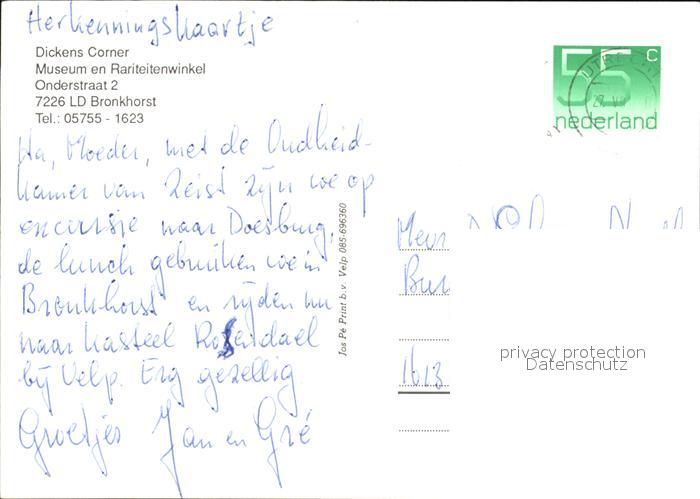 Herkenningskaartje
Dickens Corner
Museum en Rariteitenwinkel
Onderstraat 2
7226 LD Bronkhorst
Tel.: 05755 - 1623
55 C
nederland
UTRECHT
Ha, Moeder, met de Oudheid-
kamer van Zeist zijn we op
excursie naar Doesburg,
de lunch gebruiken we in
Bronkhorst en rijden nu
naar kasteel Rosendael
bij Velp. Erg gezellig
Groetjes Jan en Gré
Jos Pé Print b.v. Velp 085-696360
Mevr
1613
privacy protection
Datenschutz